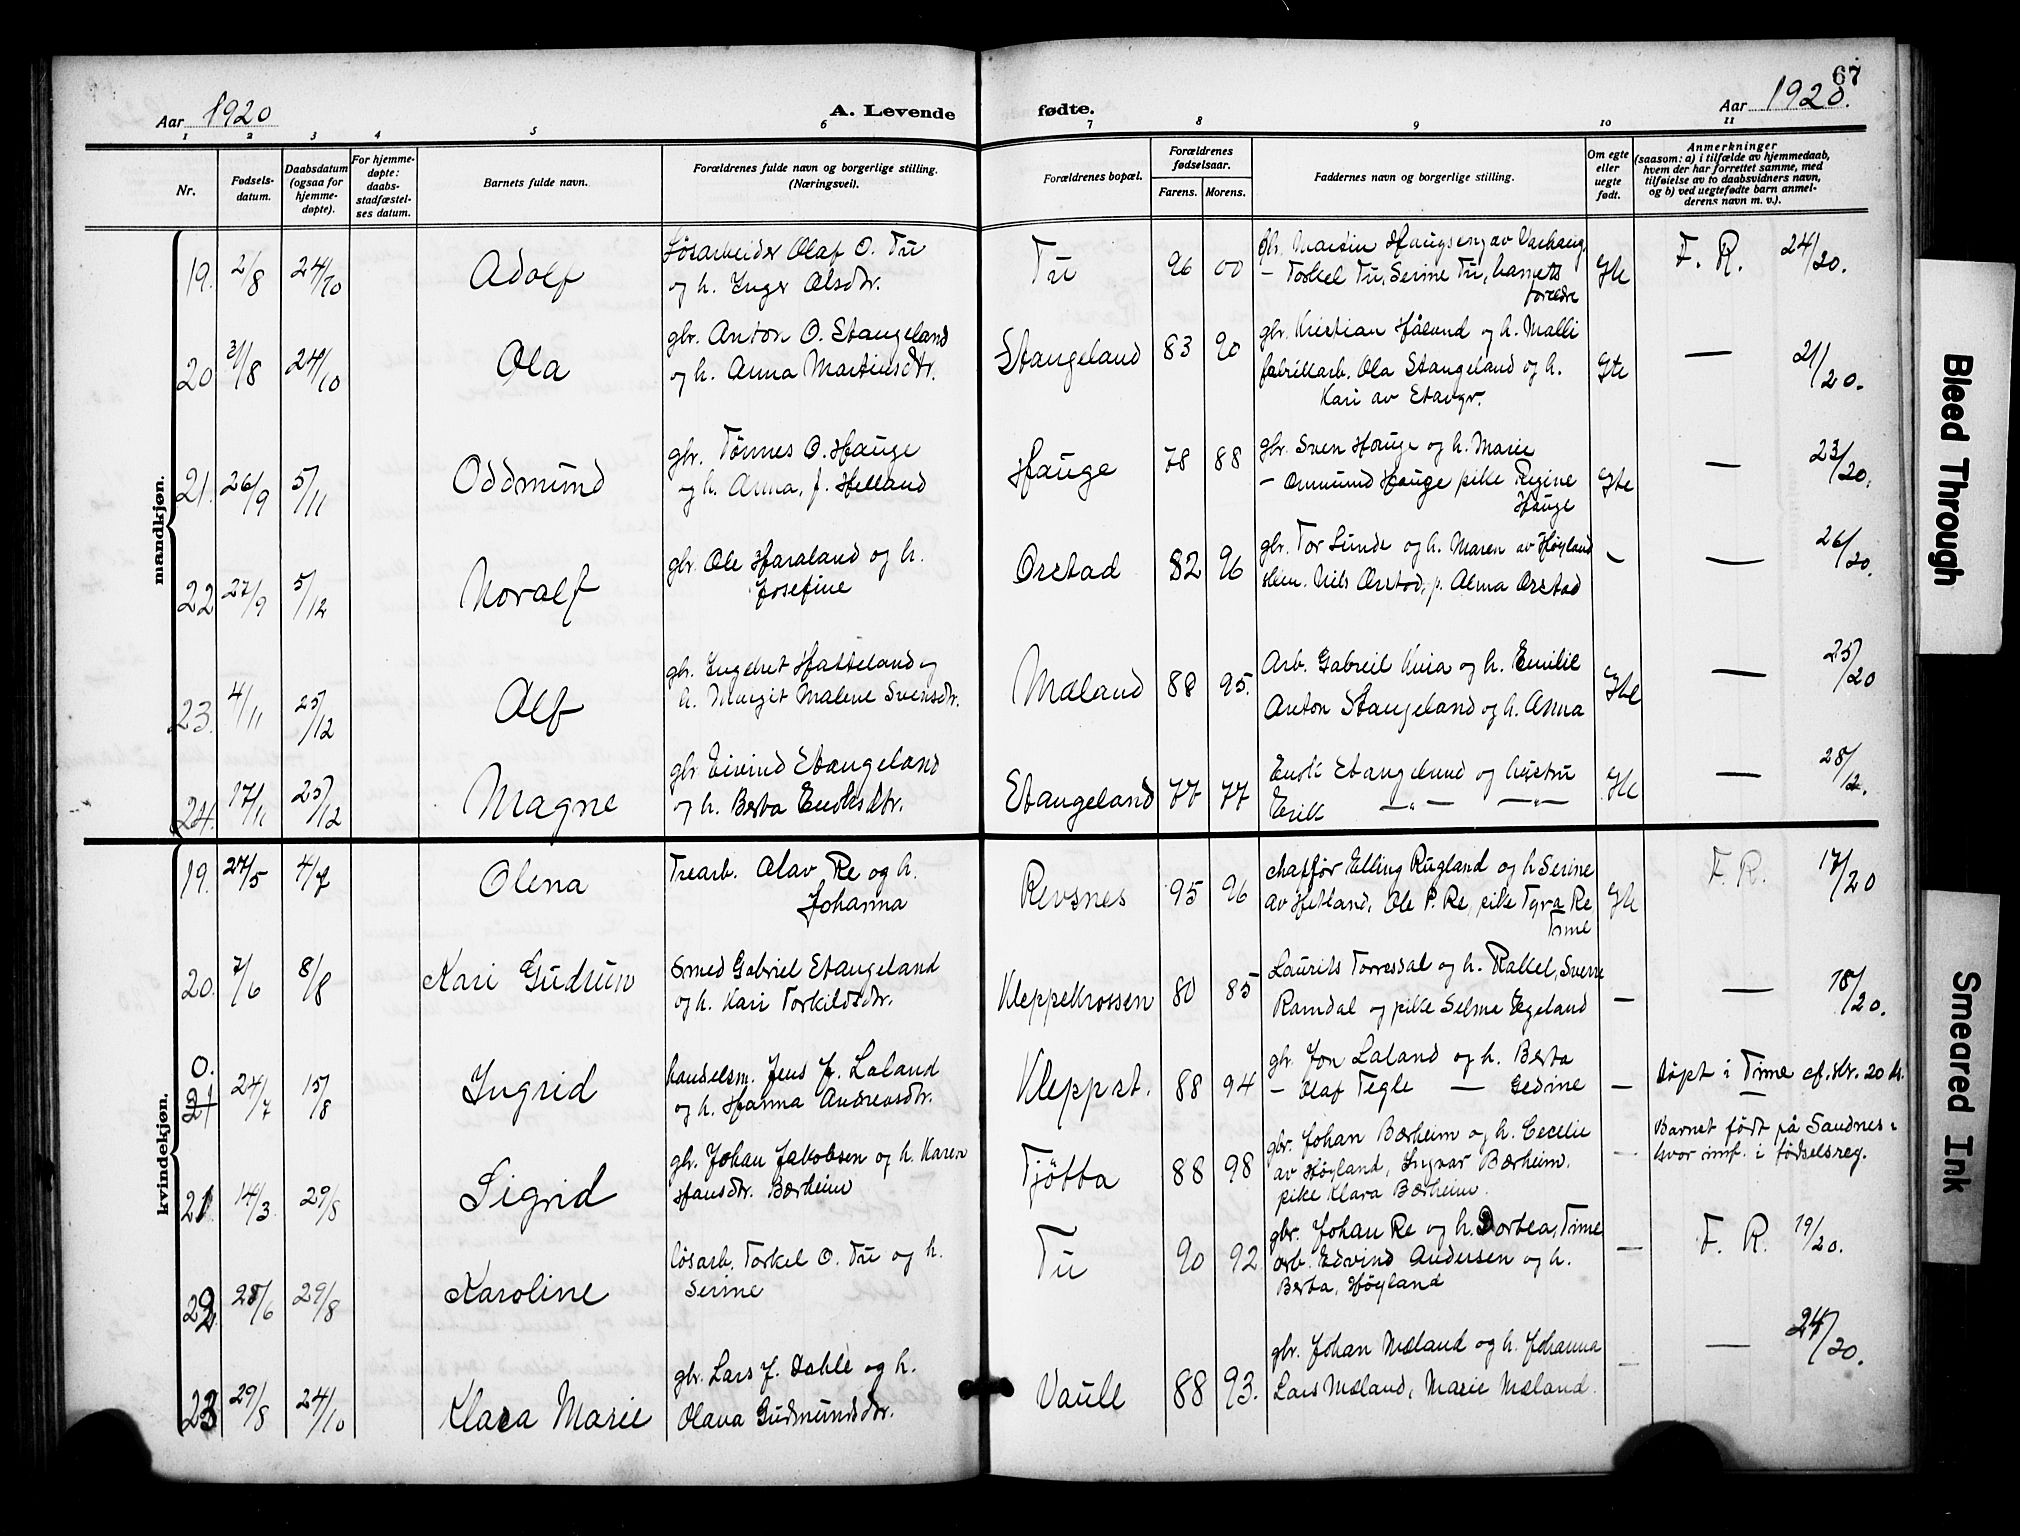 67
Aar 1920
A. Levende fødte.
Aar 1920.
1 2 3 4 5 6 7 8 9 10 11
Nr.
Fødsels-
datum.
Daabsdatum
(ogsaa for
hjemme-
døpte).
For hjemme-
døpte:
daabs-
stadfæstel-
ses datum.
Barnets fulde navn.
Forældrenes fulde navn og borgerlige stilling.
(Næringsvei).
Forældrenes bopæl.
Forældrenes
fødselsaar.
Farens. Morens.
Faddernes navn og borgerlige stilling.
Om egte
eller
uegte
født.
Anmerkninger
(saasom: a) i tilfælde av hjemmedaab,
hvem der har forrettet samme, med
tilføielse av to daabsvidners navn,
og b) ved uegtefødte barn anmel-
derens navn m. v.).
mandkjøn.
19. 2/8 24/10 Adolf
Løsarbeider Olaf O. Tu
og h. Inger Olsdtr.
Tu 96 00
gbr. Martin Haugseng av Varhaug
— Torkel Tu, Serine Tu, barnets
forældre
Gte F. R. 24/20.
20 31/8 24/10 Ola
gbr. Anton O. Stangeland
og h. Anna Martinsdtr.
Stangeland 83 90
gbr. Kristian Håland og h. Malli
fabrikarb. Ola Stangeland og h.
Kari av Stavgr.
Gte — 21/20.
21. 26/9 5/11 Oddmund
gbr. Tønnes O. Hauge
og h. Anna, f. Helland
Hauge 78 88
gbr. Sven Hauge og h. Marie
— Ommund Hauge pike Regine
Hauge
Gte — 23/20.
22 27/9 5/12 Noralf
gbr. Ole Haraland og h.
Josefine
Orstad 82 96
gbr. Tor Lunde og h. Maren av Høyland
Nils Orstad, p. Alma Orstad
— — 26/20.
23. 4/11 25/12 Alf
gbr. Ingebret Hatteland og
h. Margit Malene Svensdtr.
Mæland 88 95.
Arb. Gabriel Kvia og h. Emilie
Anton Stangeland og h. Anna
Gte — 25/20
24. 17/11 25/12 Magne
gbr. Eivind Stangeland
og h. Berta Enoksdtr.
Stangeland 77 77
Enok Stangeland og hustru
Erik —„— —„—
Gte — 28/12.
kvindekjøn.
19. 27/5 4/7 Olena
Trearb. Olav Re og h.
Johanna
Revsnes 95 96
chaffør Elling Rugland og h Serine
av Hetland, Ole P. Re, pike Tyra Re
Time
Gte F. R. 17/20
20. 7/6 8/8 Kari Gudrun
Smed Gabriel Stangeland
og h. Kari Torkildsdtr.
Kleppekrossen 80 85
Laurits Torressal og h. Rakel, Sverre
Ramdal og pike Selma Egeland
— — 18/20.
0. 21 24/7 15/8 Ingrid
handelsm. Jens J. Laland
og h. Hanna Andreasdtr.
Kleppst. 88 94
gbr. Jon Laland og h. Berta
— Olaf Tegle — Gedine
— døpt i Time cf. nr. 20 k.
21 14/3 29/8 Sigrid
gbr. Johan Jakobsen og h. Karen
Hansdtr. Bærheim
Tjøtta 88 98
gbr. Johan Bærheim og h. Cecelie
av Høyland, Ingvar Bærheim.
pike Klara Bærheim.
—
Barnet født på Sandnes,
hvor innf. i fødselsreg.
22 28/6 29/8 Karoline
løsarb. Torkel O. Tu og h.
Serine
Tu 90 92
gbr. Johan Re og h. Dortea, Time
arb. Edvind Andersen og h.
Berta, Høyland
— F. R. 19/20.
23 29/8 24/10 Klara Marie
gbr. Lars J. Dahle og h.
Olava Gudmundsdtr.
Vaule 88 93.
gbr. Johan Mæland og h. Johanna
Lars Mæland, Marie Mæland.
— — 24/20.
Bleed Through
Smeared Ink